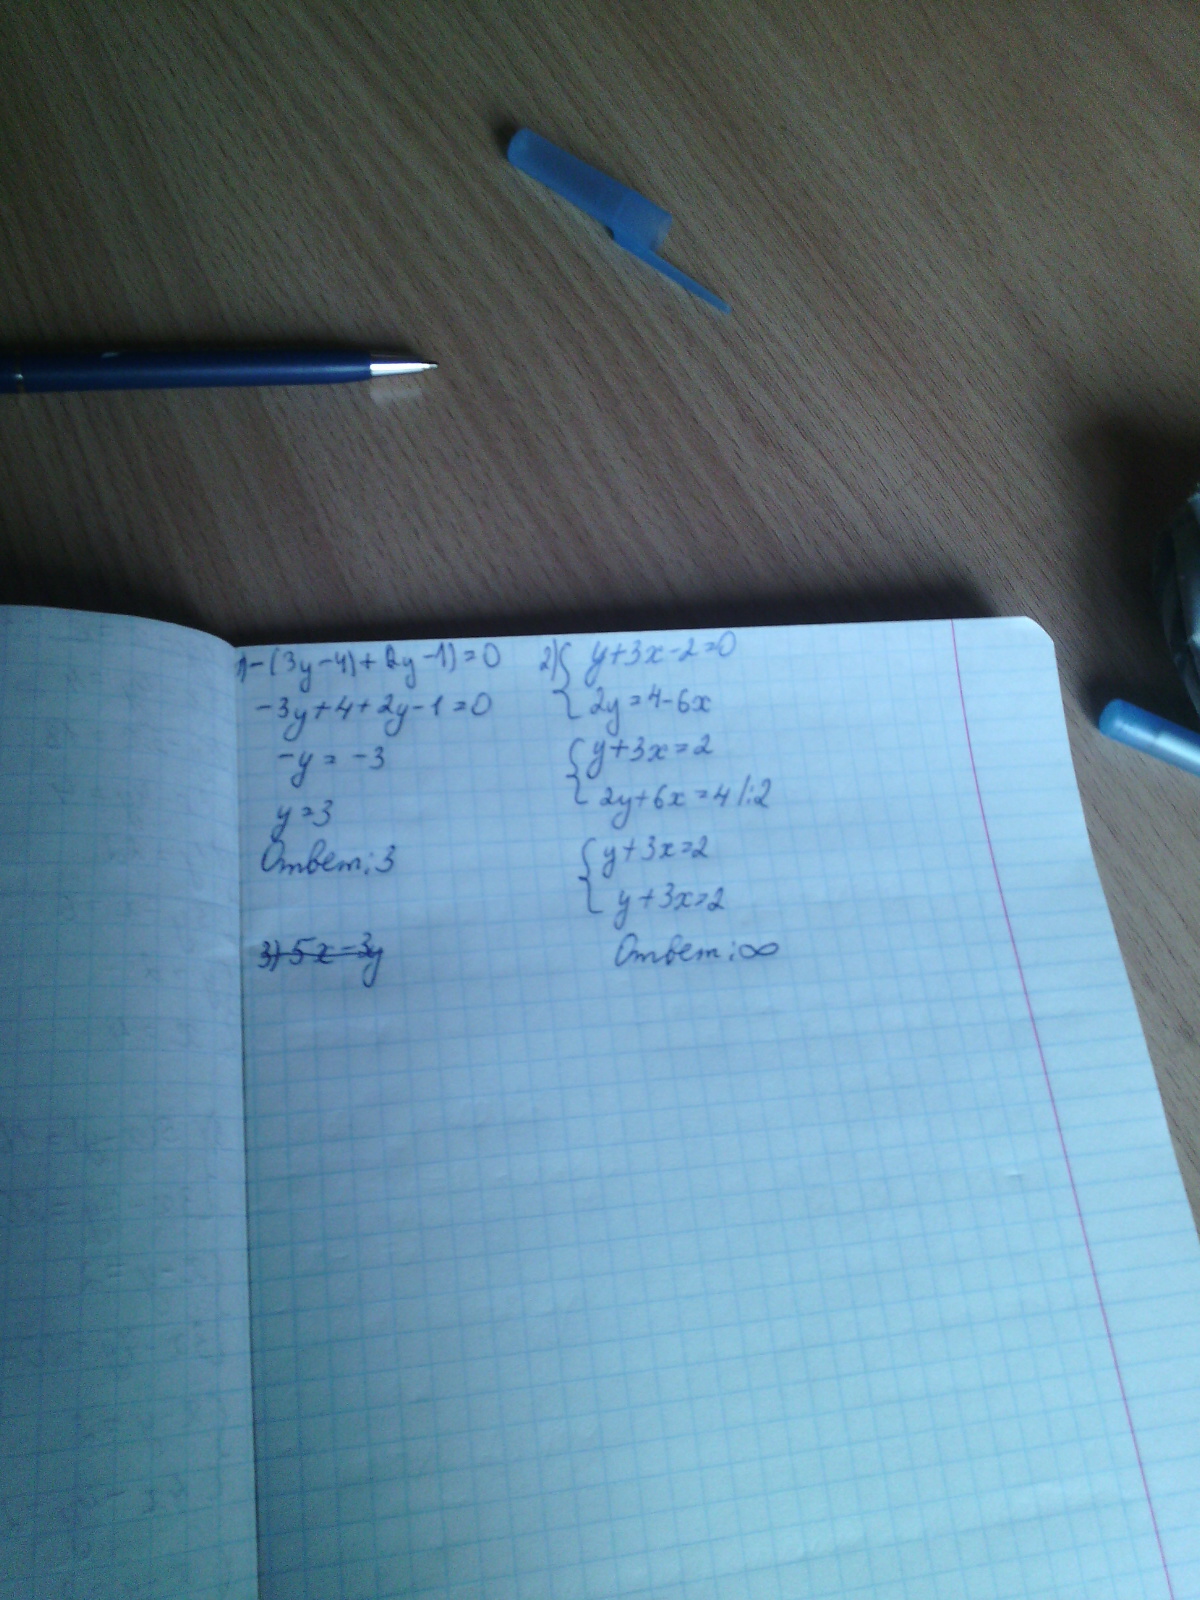 1) -(3y-4)+(2y-1)=0
-3y+4+2y-1=0
-y = -3
y=3
Ответ: 3
3) 5x-3y
2) { y+3x-2=0
2y=4-6x
{ y+3x=2
2y+6x=4 |:2
{ y+3x=2
y+3x=2
Ответ: ∞